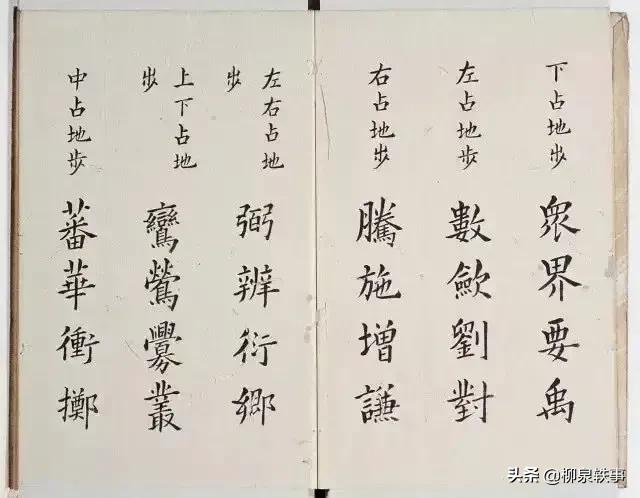 下占地步
眾界要禹
左占地步
數歛劉對
右占地步
騰施增謙
左右占地
步
弼辨衍鄉
上下占地
步
鸞鶯爨叢
中占地步
蕃華衝擲
头条 @柳泉轶事